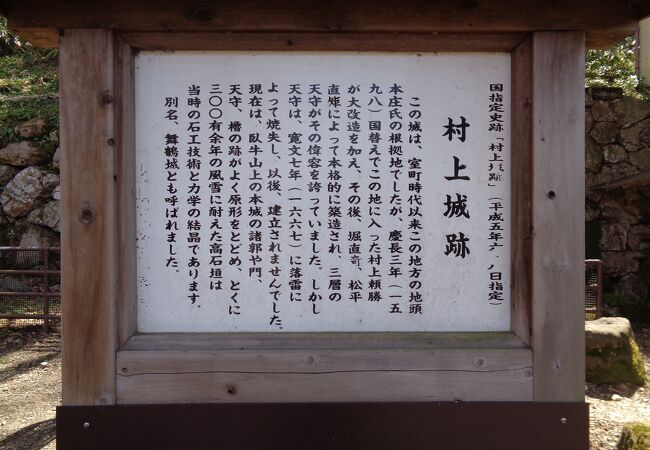 国指定史跡「村上城跡」(平成五年六 ノ日指定)
村上城跡
この城は、室町時代以来この地方の地頭
本庄氏の根拠地でしたが、慶長三年(一五
九八)国替えでこの地に入った村上頼勝
が大改造を加え、その後、堀直竒、松平
直矩によって本格的に築造され、三層の
天守がその偉容を誇っていました。しかし
天守は、寛文七年(一六六七)に落雷に
よって焼失し、以後、建立されませんでした。
現在は、臥牛山上の本城の諸郭や門、
天守、櫓の跡がよく原形をとどめ、とくに
三〇〇有余年の風雪に耐えた高石垣は
当時の石工技術と力学の結晶であります。
別名、舞鶴城とも呼ばれました。